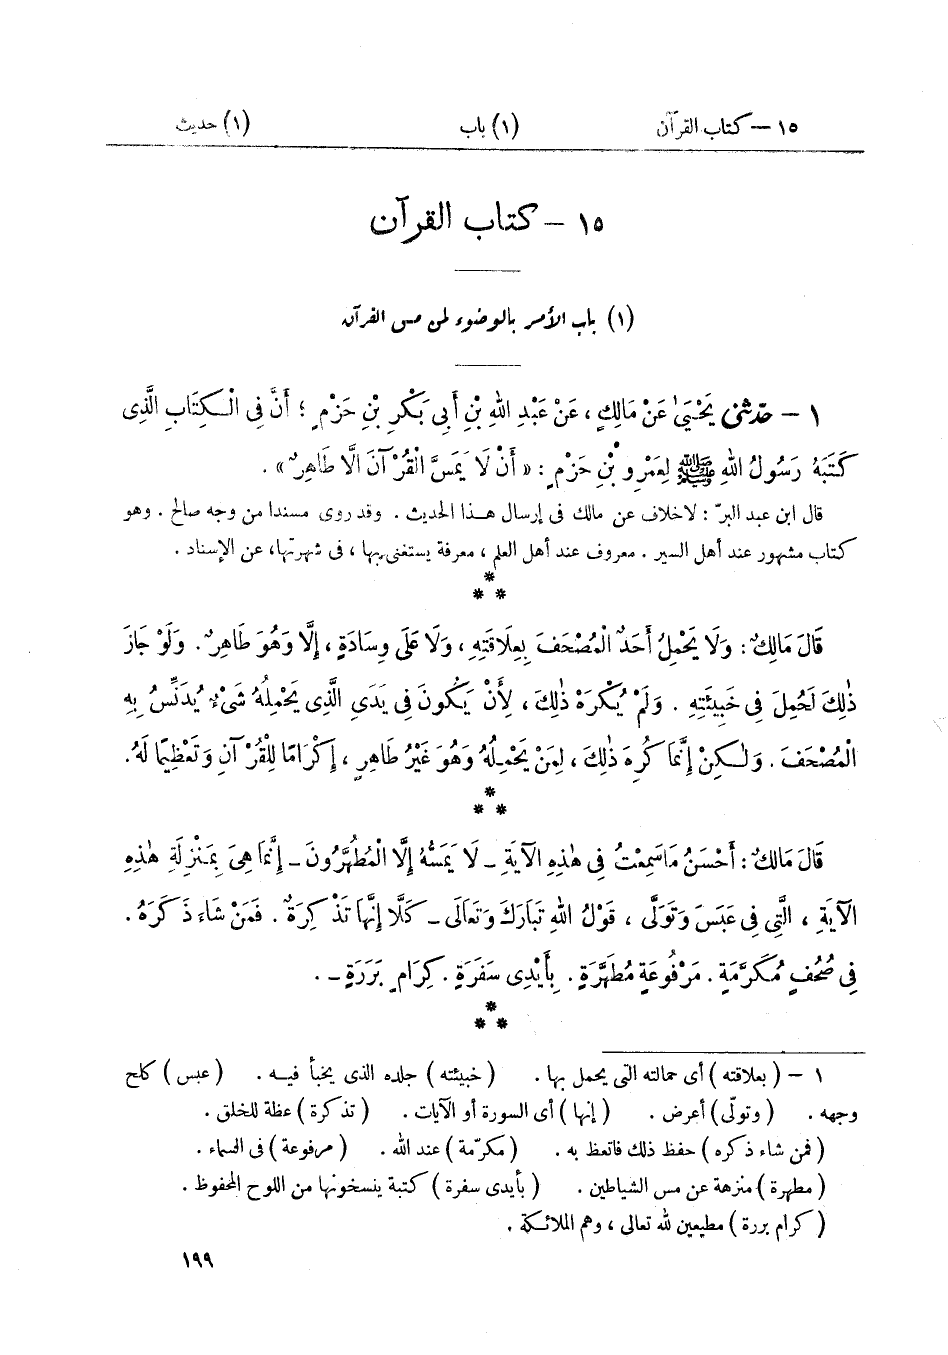 ١٥ – كتاب القرآن (١) باب (١) حديث
١٥ – كتاب القرآن
(١) باب الأمر بالوضوء لمن مس القرآن
١ – حدّثنى يَحْيَىٰ عَنْ مَالِكٍ ، عَنْ عَبْدِ اللهِ بْنِ أَبِى بَكْرِ بْنِ حَزْمٍ ؛ أَنَّ فِى الْـكِتَابِ الَّذِى
كَتَبَهُ رَسُولُ اللهِ ﷺ لِعَمْرِو بْنِ حَزْمٍ : « أَنْ لَا يَمَسَّ الْقُرْآنَ الَّا طَاهِرٌ » .
قال ابن عبد البرّ : لاخلاف عن مالك فى إرسال هـذا الحديث . وقد روى مسندا من وجه صالح . وهو
كتاب مشهور عند أهل السير . معروف عند أهل العلم ، معرفة يستغنى بها ، فى شهرتها، عن الإسناد .
*
* *
قَالَ مَالِكٌ : وَلَا يَحْمِلُ أَحَدٌ الْمُصْحَفَ بِعِلَاقَتِهِ ، وَلَا عَلَى وِسَادَةٍ ، إِلَّا وَهُوَ طَاهِرٌ . وَلَوْ جَازَ
ذٰلِكَ لَحُمِلَ فِى خَبِيئَتِهِ . وَلَمْ يُكْرَهْ ذٰلِكَ ، لِأَنْ يَكُونَ فِى يَدَىِ الَّذِى يَحْمِلُهُ شَىْءٌ يُدَنِّسُ بِهِ
الْمُصْحَفَ . وَلٰـكِنْ إِنَّمَا كُرِهَ ذٰلِكَ ، لِمَنْ يَحْمِلُهُ وَهُوَ غَيْرُ طَاهِرٍ ، إِكْرَامًا لِلْقُرْآنِ وَتَعْظِيمًا لَهُ.
*
* *
قَالَ مَالِكٌ : أَحْسَنُ مَاسَمِعْتُ فِى هٰذِهِ الآيَةِ – لَا يَمَسُّهُ إِلَّا الْمُطَهَّرُونَ – إِنَّمَا هِىَ بِمَنْزِلَةِ هٰذِهِ
الآيَةِ ، الَّتِى فِى عَبَسَ وَتَوَلَّى ، قَوْلُ اللهِ تَبَارَكَ وَتَعَالَى – كَلَّا إِنَّهَا تَذْكِرَةٌ . فَمَنْ شَاءَ ذَكَرَهُ .
فِى صُحُفٍ مُكَرَّمَةٍ . مَرْفُوعَةٍ مُطَهَّرَةٍ . بِأَيْدِى سَفَرَةٍ . كِرَامٍ بَرَرَةٍ – .
*
* *
١ – ( بعلاقته ) أى حمالته التى يحمل بها . ( خبيئته ) جلده الذى يخبأ فيـه . ( عبس ) كلح
وجهه . ( وتولّى ) أعرض . ( إنها ) أى السورة أو الآيات . ( تذكرة ) عظة للخلق .
( فمن شاء ذكره ) حفظ ذلك فاتعظ به . ( مكرّمة ) عند الله . ( مرفوعة ) فى السماء .
( مطهرة ) منزهة عن مس الشياطين . ( بأيدى سفرة ) كتبة ينسخونها من اللوح المحفوظ .
( كرام بررة ) مطيعين لله تعالى ، وهم الملائكة .
١٩٩